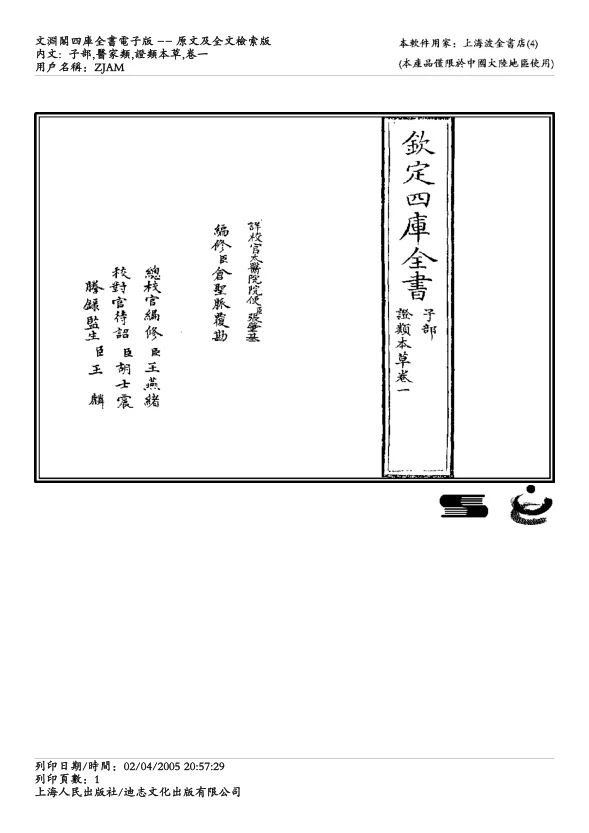 文淵閣四庫全書電子版 —— 原文及全文檢索版
內文: 子部,醫家類,證類本草,卷一
用戶名稱: ZJAM
本軟件用家: 上海波金書店(4)
(本產品僅限於中國大陸地區使用)
欽定四庫全書
子部
證類本草卷一
詳校官太醫院院使臣張肇基
編修臣倉聖脈覆勘
總校官編修臣王燕緒
校對官待詔臣胡士震
謄錄監生臣王麟
列印日期/時間: 02/04/2005 20:57:29
列印頁數: 1
上海人民出版社/迪志文化出版有限公司